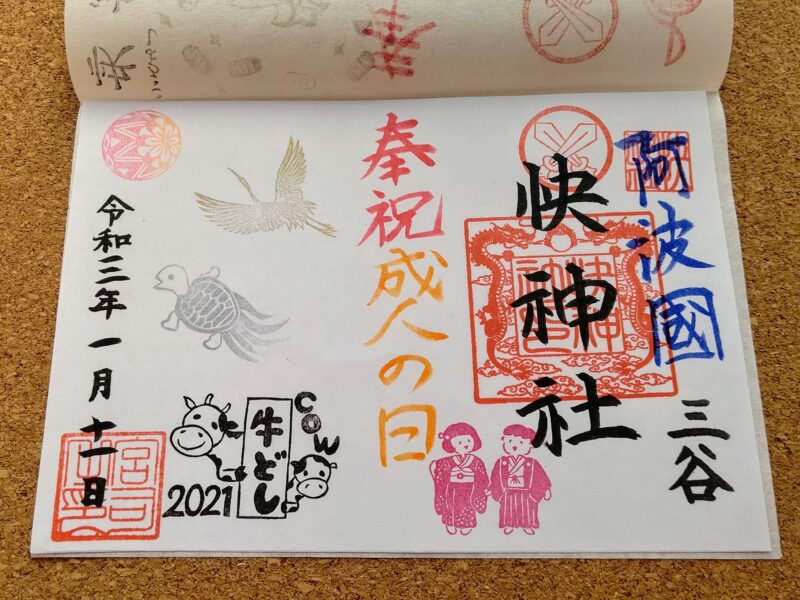 阿波國
三谷
快神社
奉祝成人の日
COW
牛どし
2021
令和三年一月十一日